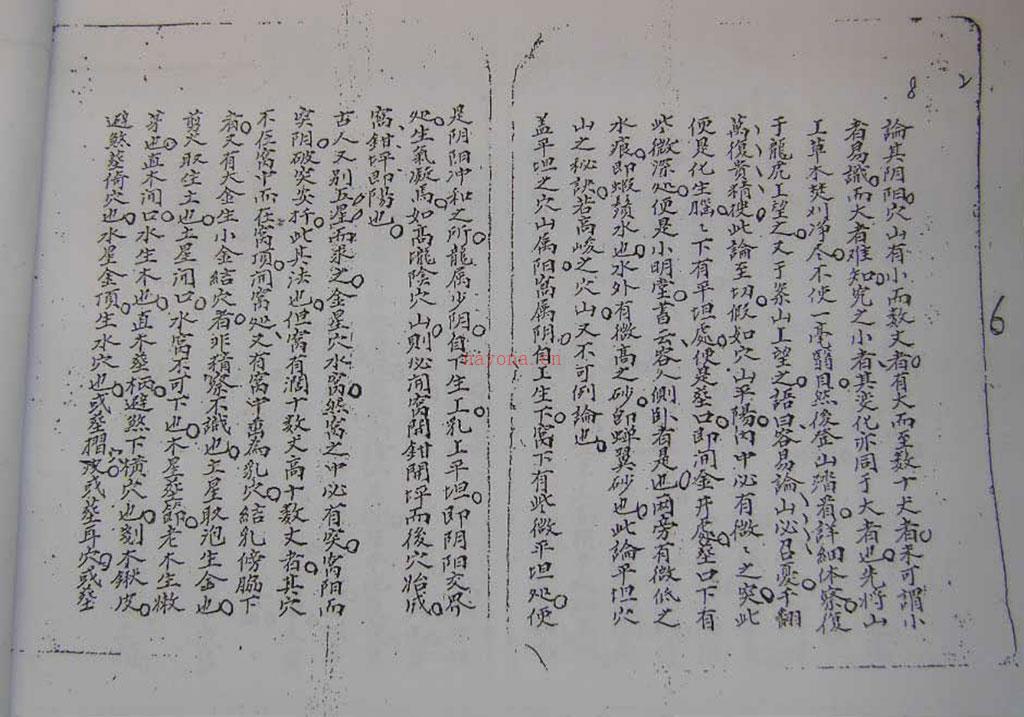 論其阴阳穴山有小而数丈者有大而至数十丈者未可謂小
者易識而大者难知究之小者其变化亦同于大者也先將山
工草木焚刈净尽不使一毫翳目然後登山踏看詳細体察復
于龍虎工望之又于案山工望之語曰容易論山必召憂千翻
萬復贵積使此論至切假如穴山平陽内中必有微〻之突此
便是化生腦〻下有平坦處便是塟口即间金井處塟口下有
些微深処便是小明堂書云容人側卧者是也兩旁有微低之
水痕即蝦鬚水也水外有微高之砂即蝉翼砂也此論平坦穴
山之秘訣若高峻之穴山又不可例論也
盖平坦之穴山属阳窩属阴自工生下窩下有些微平坦処便
是阴阳冲和之所龍属少阴自下生工乳工平坦即阴阳交界
処生氣凝焉如髙隴陰穴山則必间窩開鉗開坪而後穴始成
窩鉗坪即陽也
古人又别五星而裁之金星穴水窩然窩之中必有突窩阳而
突阴破突安扦此其法也但窩有濶十数丈高十数丈者其穴
不在窩中而在窩項间窩処又有窩中垂為乳穴結乳傍脇下
者又有大金生小金結穴者非積察不識也土星取泡生金也
剪火取住土也土星间口水窩不可下也木星塟節老木生嫩
芽也直木间口水生木也直木塟柄避煞下横穴也刻木鍬皮
避煞塟倚穴也水星金頂生水穴也或塟摺或塟耳穴或塟
8
2
6
nayona.cn